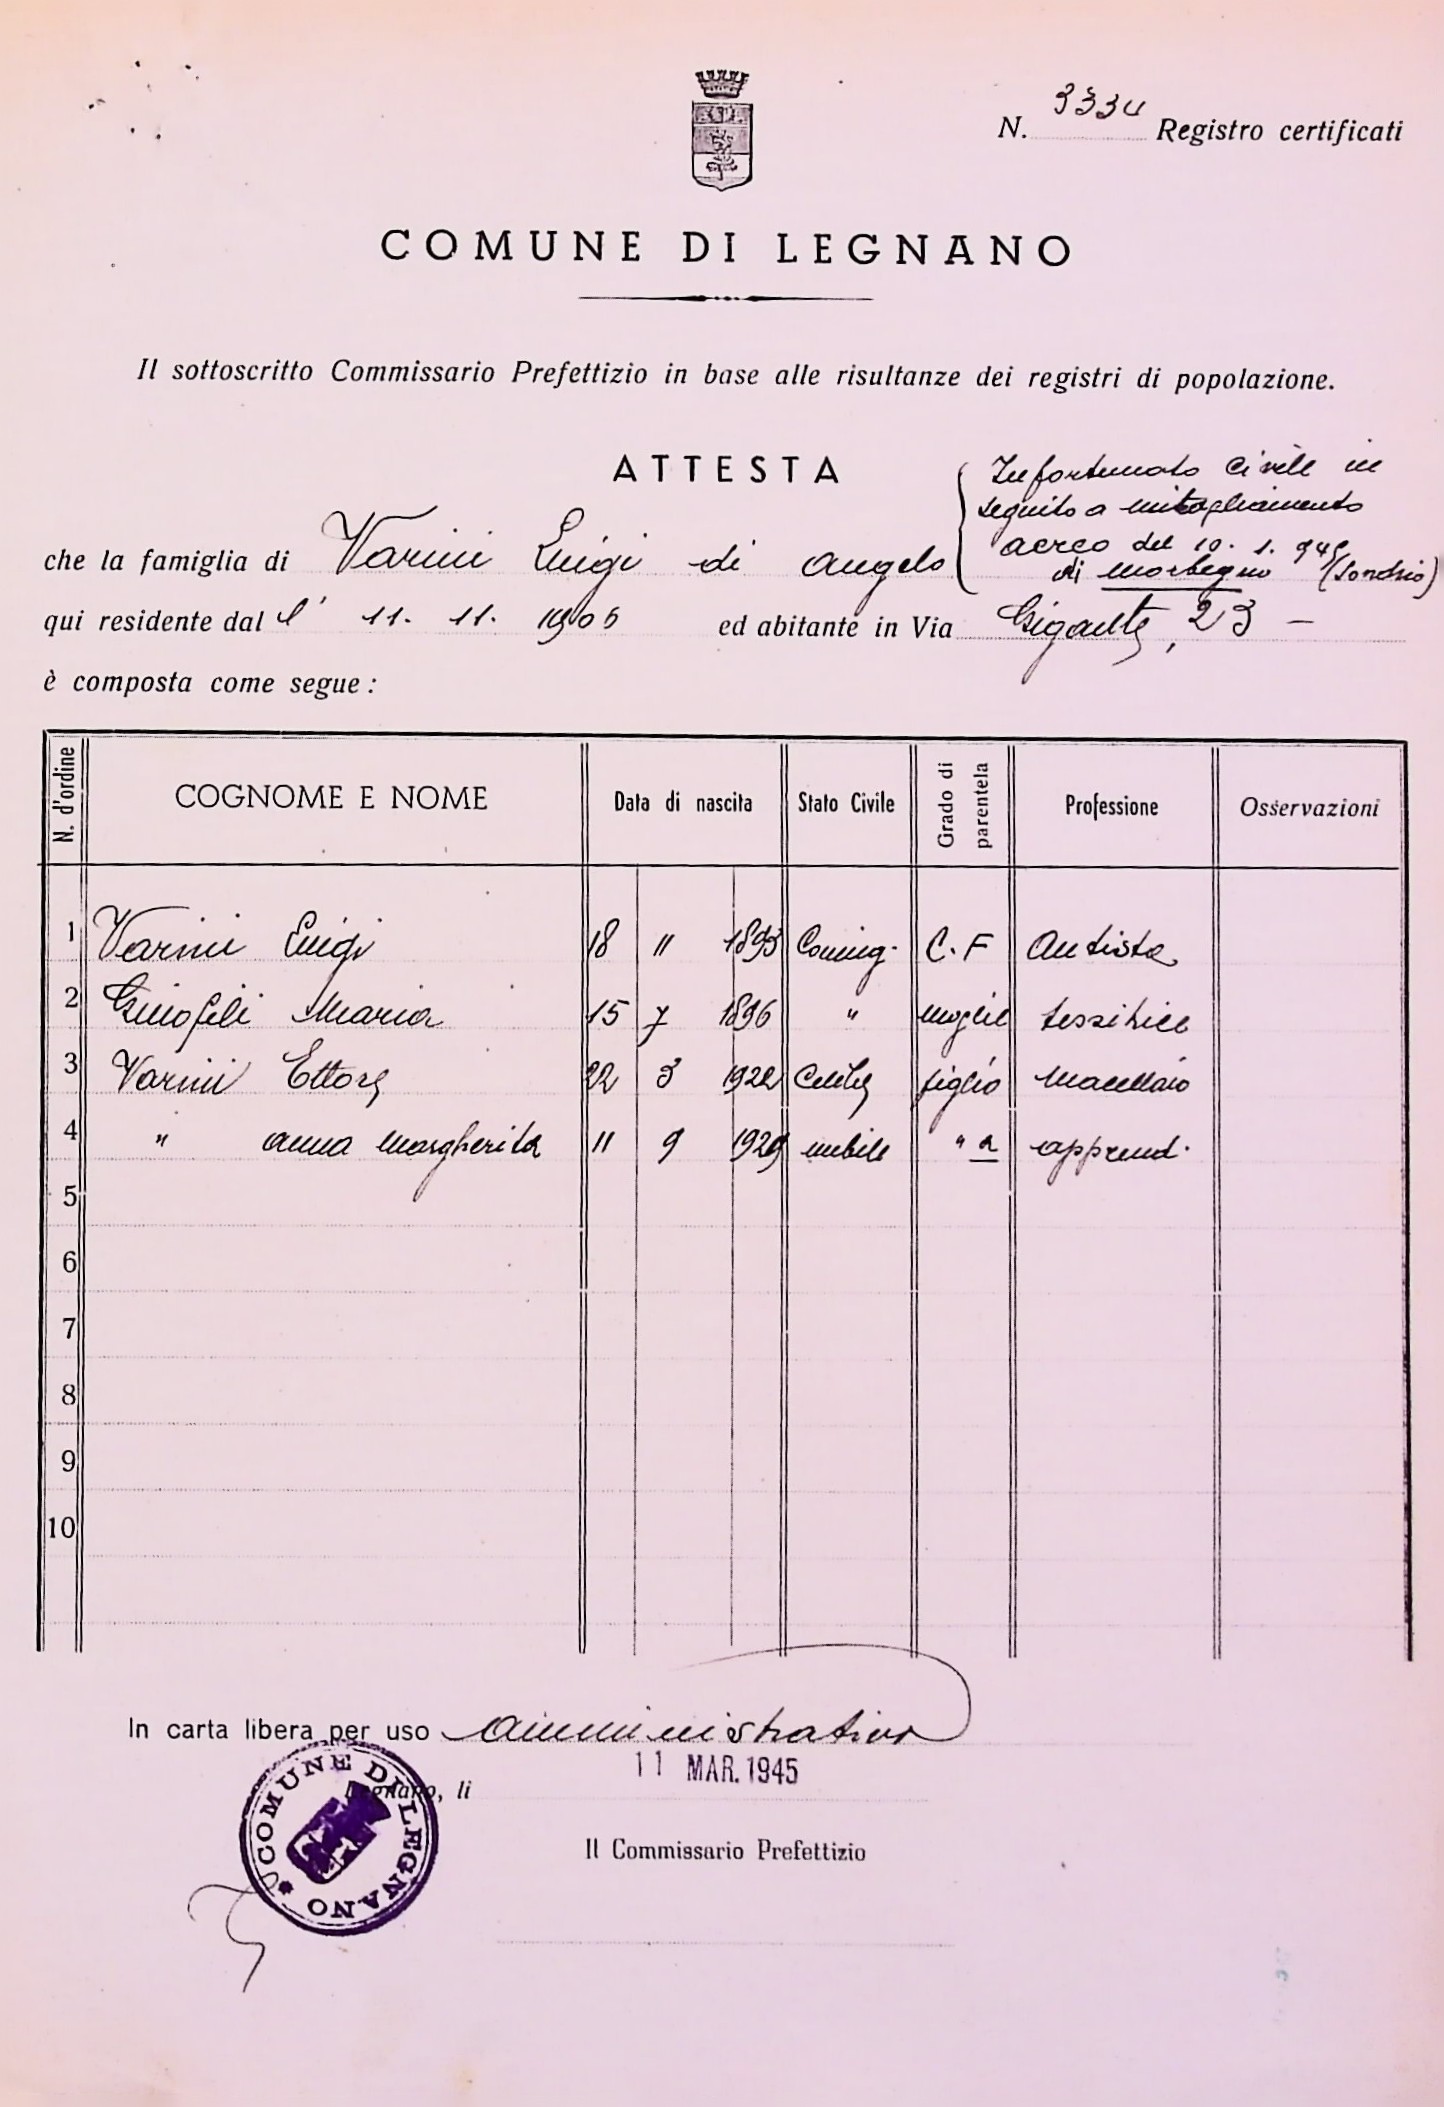 N. 3334 Registro certificati
COMUNE DI LEGNANO
Il sottoscritto Commissario Prefettizio in base alle risultanze dei registri di popolazione.
ATTESTA
Infortunato Civile in
seguito a mitragliamento
aereo del 10. 1. 945
di Morbegno (Sondrio)
che la famiglia di Varini Luigi di Angelo
qui residente dal l' 11. 11. 1906 ed abitante in Via Gigante, 23 —
è composta come segue :
N. d'ordine COGNOME E NOME Data di nascita Stato Civile Grado di parentela Professione Osservazioni
1 Varini Luigi 18 " 1893 Coniug. C. F Autista
2 Maria 15 7 1896 " moglie tessitrice
3 Varini Ettore 22 3 1922 Celibe figlio Macellaio
4 " Anna Margherita 11 9 1929 nubile " a apprend.
5
6
7
8
9
10
In carta libera per uso amministrativo
Legnano, li 11 MAR. 1945
COMUNE DI LEGNANO
Il Commissario Prefettizio